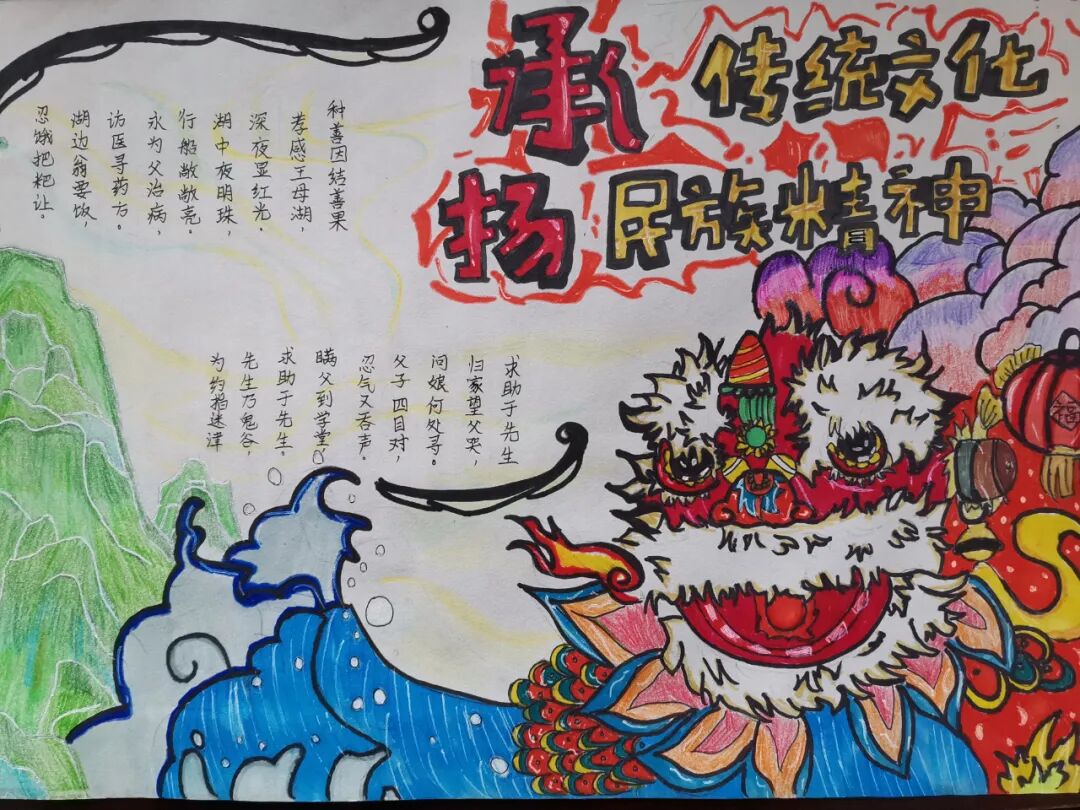 承传统文化
扬民族精神
种善因结善果
孝感王母湖，
深夜显红光。
湖中夜明珠，
行船敞敞亮。
永为父治病，
访医寻药方。
湖边翁要饭，
忍饿把粑让。
求助于先生
归家望父哭，
问娘何处寻。
父子四目对，
忍气又吞声。
瞒父到学堂，
求助于先生。
先生乃鬼谷，
为约指迷津
福